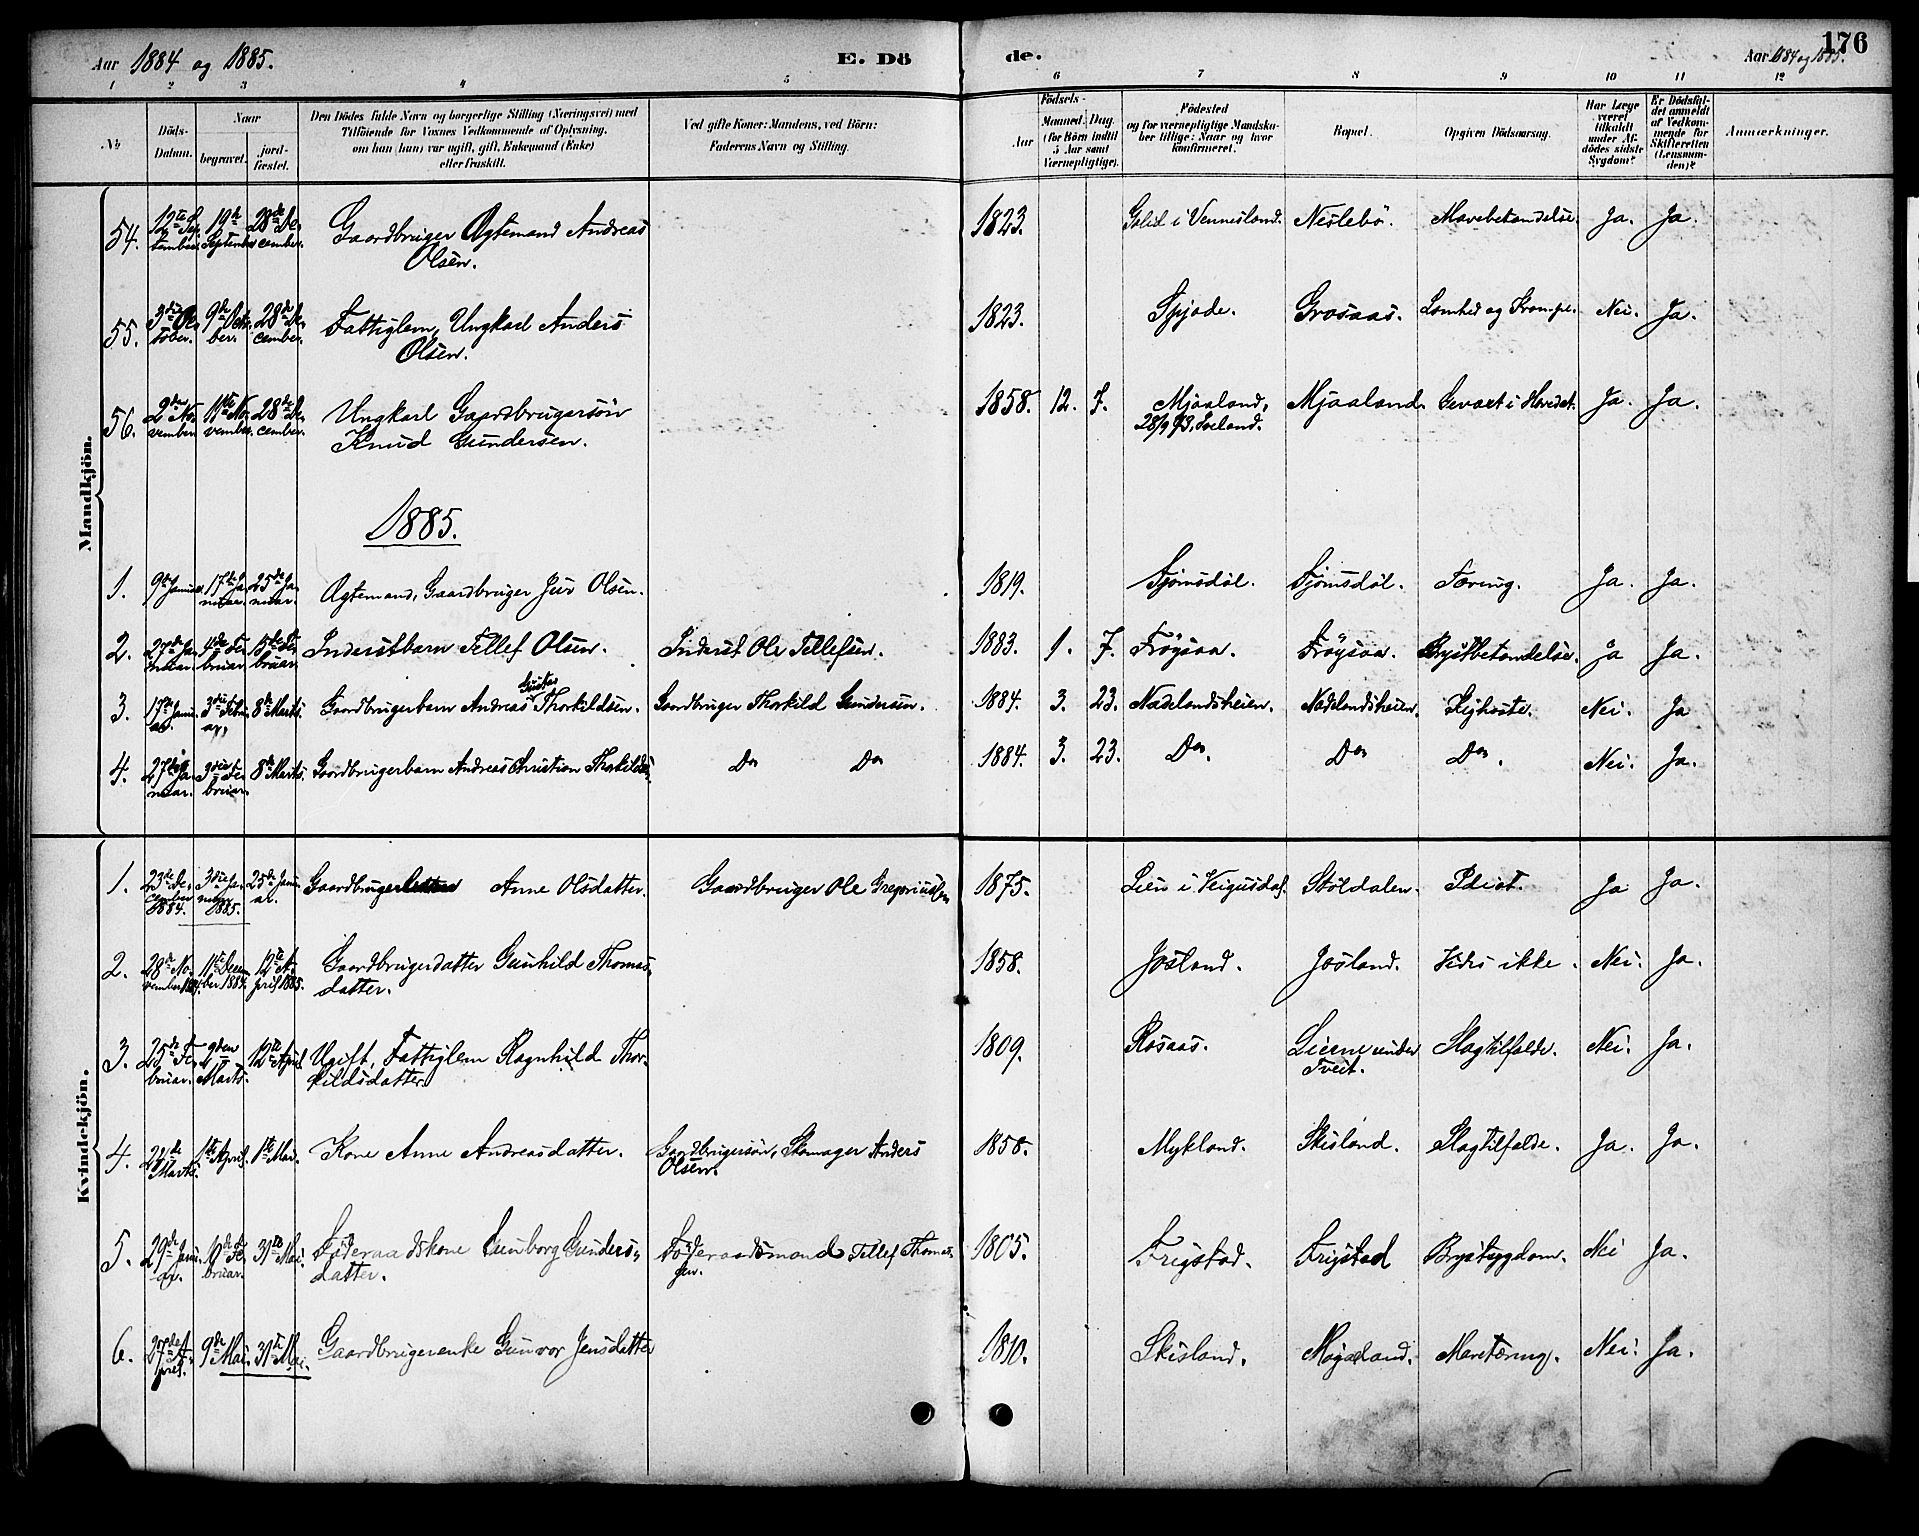 Aar 1884 og 1885.
E. Dö de.
Aar 1884 og 1885.
176
1 2 3 4 5 6 7 8 9 10 11 12
No
Döds-Datum.
Naar
begravet.
jord-fæstet.
Den Dödes fulde Navn og borgerlige Stilling (Næringsvei) med
Tilföiende for Voxnes Vedkommende af Oplysning,
om han (hun) var ugift, gift, Enkemand (Enke)
eller fraskilt.
Ved gifte Koner: Mandens, ved Börn:
Faderens Navn og Stilling.
Födsels-
Aar
Maaned. Dag.
(for Börn indtil
5 Aar samt
Værnepligtige).
Födested
og for værnepligtige Mandska-
ber tillige: Naar og hvor
konfirmeret.
Bopæl.
Opgiven Dödsaarsag.
Har Læge
været
tilkaldt
under Af-
dödes sidste
Sygdom?
Er Dödsfal-
det anmeldt
af Vedkom-
mende for
Skifteretten
(Lensman-
den)?
Anmærkninger.
Mandkjön.
54. 12te Sep-tember. 19de September 28de De-cember. Gaardbruger Ægtemand Andreas
Olsen.
1823. i Vennesland. Neslebö. Mavebetændelse. Ja. Ja.
55. 3die Oc-tober. 9de Octo-ber. 28de De-cember. Fattiglem, Ungkarl Anders
Olsen.
1823. Spjode. Grosaas. Lamhed og Krampe. Nei. Ja.
56. 2den No-vember. 11te No-vember. 28de De-cember. Ungkarl Gaardbrugersön
Knud Gundersen.
1858. 12. 7. Mjaaland, 28/9 73, Iveland. Mjaaland. Gevæxt i Hovedet. Ja. Ja.
1885.
1. 9de Januar. 17de Ja-nuar. 25de Ja-nuar. Ægtemand, Gaardbruger Jur Olsen.
1819. Tjomsdöl. Tjomsdöl. Tæring. Ja. Ja.
2. 27de Ja-nuar. 4de Fe-bruar. 15de Fe-bruar. Inderstbarn Tellef Olsen. Inderst Ole Tellefsen.
1883. 1. 7. Fröysaa. Fröysaa. Brystbetændelse. Ja Ja.
3. 17de Janu-ar. 3die Febru-ar. 8de Marts. Gaardbrugerbarn Andreas Gustav Thorkildsen. Gaardbruger Thorkild Gundersen.
1884. 3. 23. Nadelandsheien. Nadelandsheien. Kighoste. Nei. Ja
4. 27de Ja-nuar. 3die Fe-bruar. 8de Marts. Gaardbrugerbarn Andreas Christian Thorkilds. Do Do
1884. 3. 23. Do. Do Do. Nei. Ja.
Kvindekjön.
1. 23de De-cember 1884. 3die Ja-nuar 1885. 25de Janu-ar. Gaardbrugerdatter Anne Olsdatter. Gaardbruger Ole Gregoriussen
1875. Lien i Veigusdal. Stöldalen. Idiot. Ja Ja.
2. 28de No-vember 1884. 11te Decem-ber 1884. 12te A-pril 1885. Gaardbrugerdatter Gunhild Thomas-
datter.
1858. Josland. Josland. Vides ikke. Nei. Ja.
3. 25de Fe-bruar. 2den Marts. 12te April. Ugift, Fattiglem Ragnhild Thor-
kildsdatter.
1809. Rosaas. Lierne under Tveit. Slagtilfælde. Nei. Ja.
4. 22de Marts. 1te April. 1te Mai. Kone Anne Andreasdatter. Gaardbrugersön, Skomager Anders
Olsen.
1858. Mykland. Skisland. Slagtilfælde. Ja. Ja.
5. 29de Janu-ar. 10de Fe-bruar. 31te Mai. Föderaadskone Gunborg Gunders-
datter. Föderaadsmand Tellef Thomas-
sen.
1805. Frigstad. Frigstad Brystsygdom. Nei Ja.
6. 27de A-pril. 9de Mai. 31te Mai. Gaardbrugerenke Gunvor Jensdatter
1810. Skisland. Mogaland. Mavetæring. Nei. Ja.